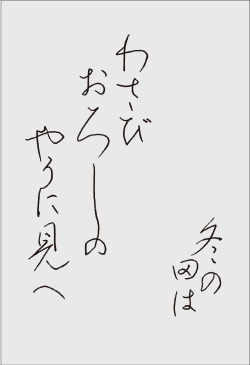 冬の
田は
わさび
おろしの
やうに見へ